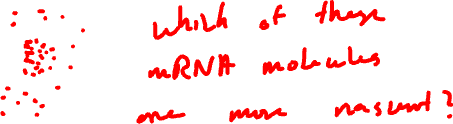 which of these
mRNA molecules
are more nascent?